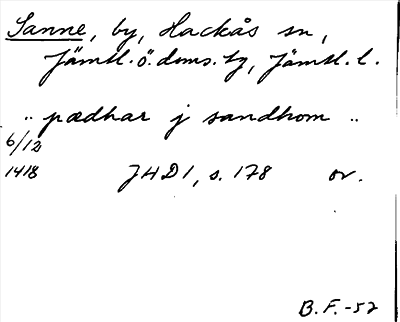 Sanne, by, Hackås sn,
Jämtl.ö.doms.tg, Jämtl.l.
.. pædhar j sandhom ..
6/12
1418 JHD1, s. 178 or.
B.F.-52